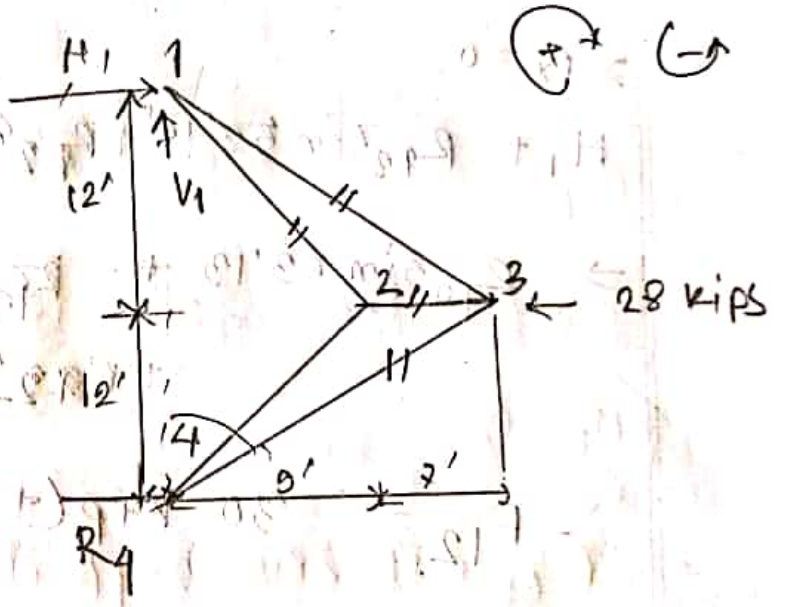 + −
H1 1
12' V1
2 3 ← 28 kips
12'
4
9' 7'
R4